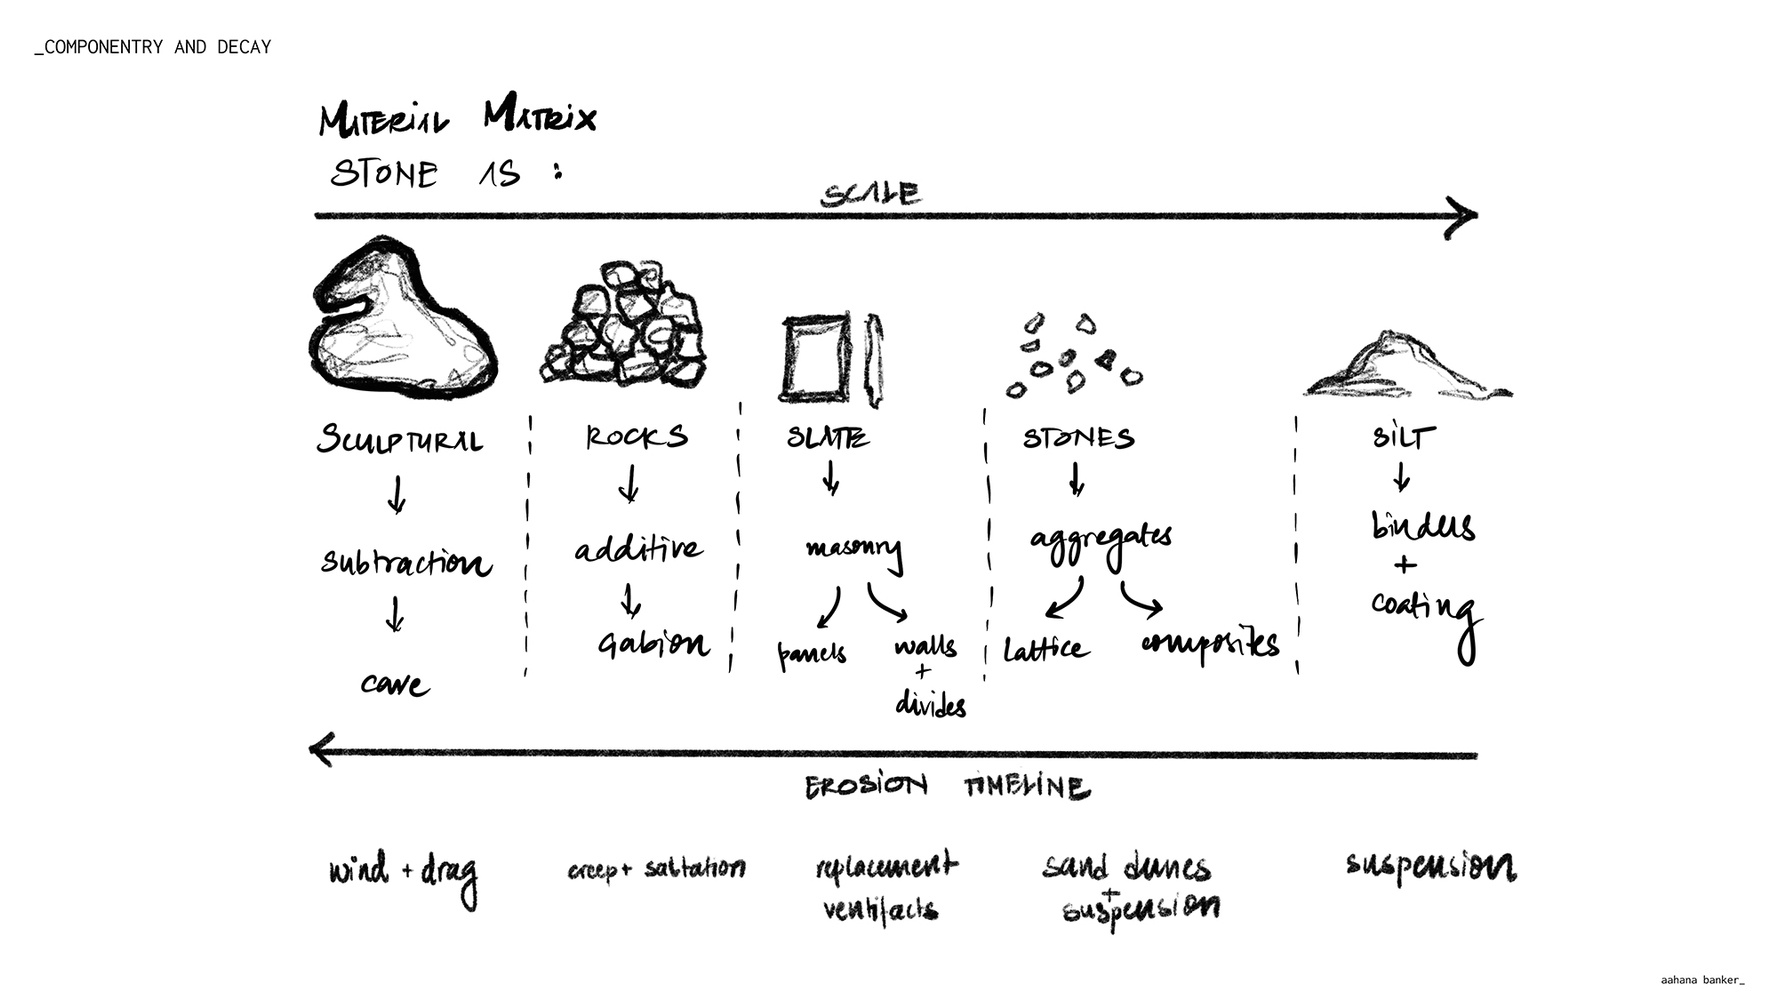 _COMPONENTRY AND DECAY
MATERIAL MATRIX
STONE IS :
SCALE
SCULPTURAL
ROCKS
SLATE
STONES
SILT
subtraction
additive
masonry
aggregates
binders
+
coating
cave
Gabion
panels
walls
+
divides
Lattice
composites
EROSION TIMELINE
wind + drag
creep + saltation
replacement
ventifacts
sand dunes
+
suspension
suspension
aahana banker_